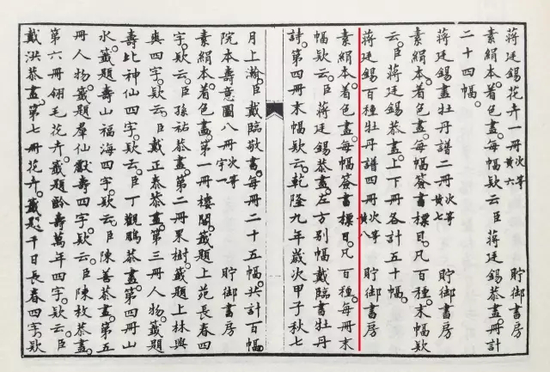 蔣廷錫花卉一冊 次等黃六 貯御書房
素絹本着色畫。每幅欵云。臣蔣廷錫恭畫。冊計
二十四幅。
蔣廷錫畫牡丹譜二冊 次等黃七 貯御書房
素絹本着色畫。每幅簽書標目。凡百種。末幅欵
云。臣蔣廷錫恭畫。上下冊各計五十幅。
蔣廷錫百種牡丹譜四冊 次等黃八 貯御書房
素絹本着色畫。每幅簽書標目。凡百種。每冊末
幅欵云。臣蔣廷錫恭畫。左方別幅戴臨書牡丹
詩。第四冊末幅欵云。乾隆九年歲次甲子秋七
月上澣。臣戴臨敬書。每冊二十五幅。共計百幅。
院本壽意圖八冊 次等宇一 貯御書房
素絹本着色畫。第一冊樓閣。籤題上苑長春四
字。欵云。臣孫祜恭畫。第二冊果樹。籤題上林與
與四字。欵云。臣戴正泰恭畫。第三冊人物。籤題
壽比神仙四字。欵云。臣丁觀鵬恭畫。第四冊山
水。籤題壽山福海四字。欵云。臣陳善恭畫。第五
冊人物。籤題群仙獻壽四字。欵云。臣陳枚恭畫。
第六冊翎毛花卉。籤題齡壽萬年四字。欵云。臣
戴洪恭畫。第七冊花卉。籤題千日長春四字。欵